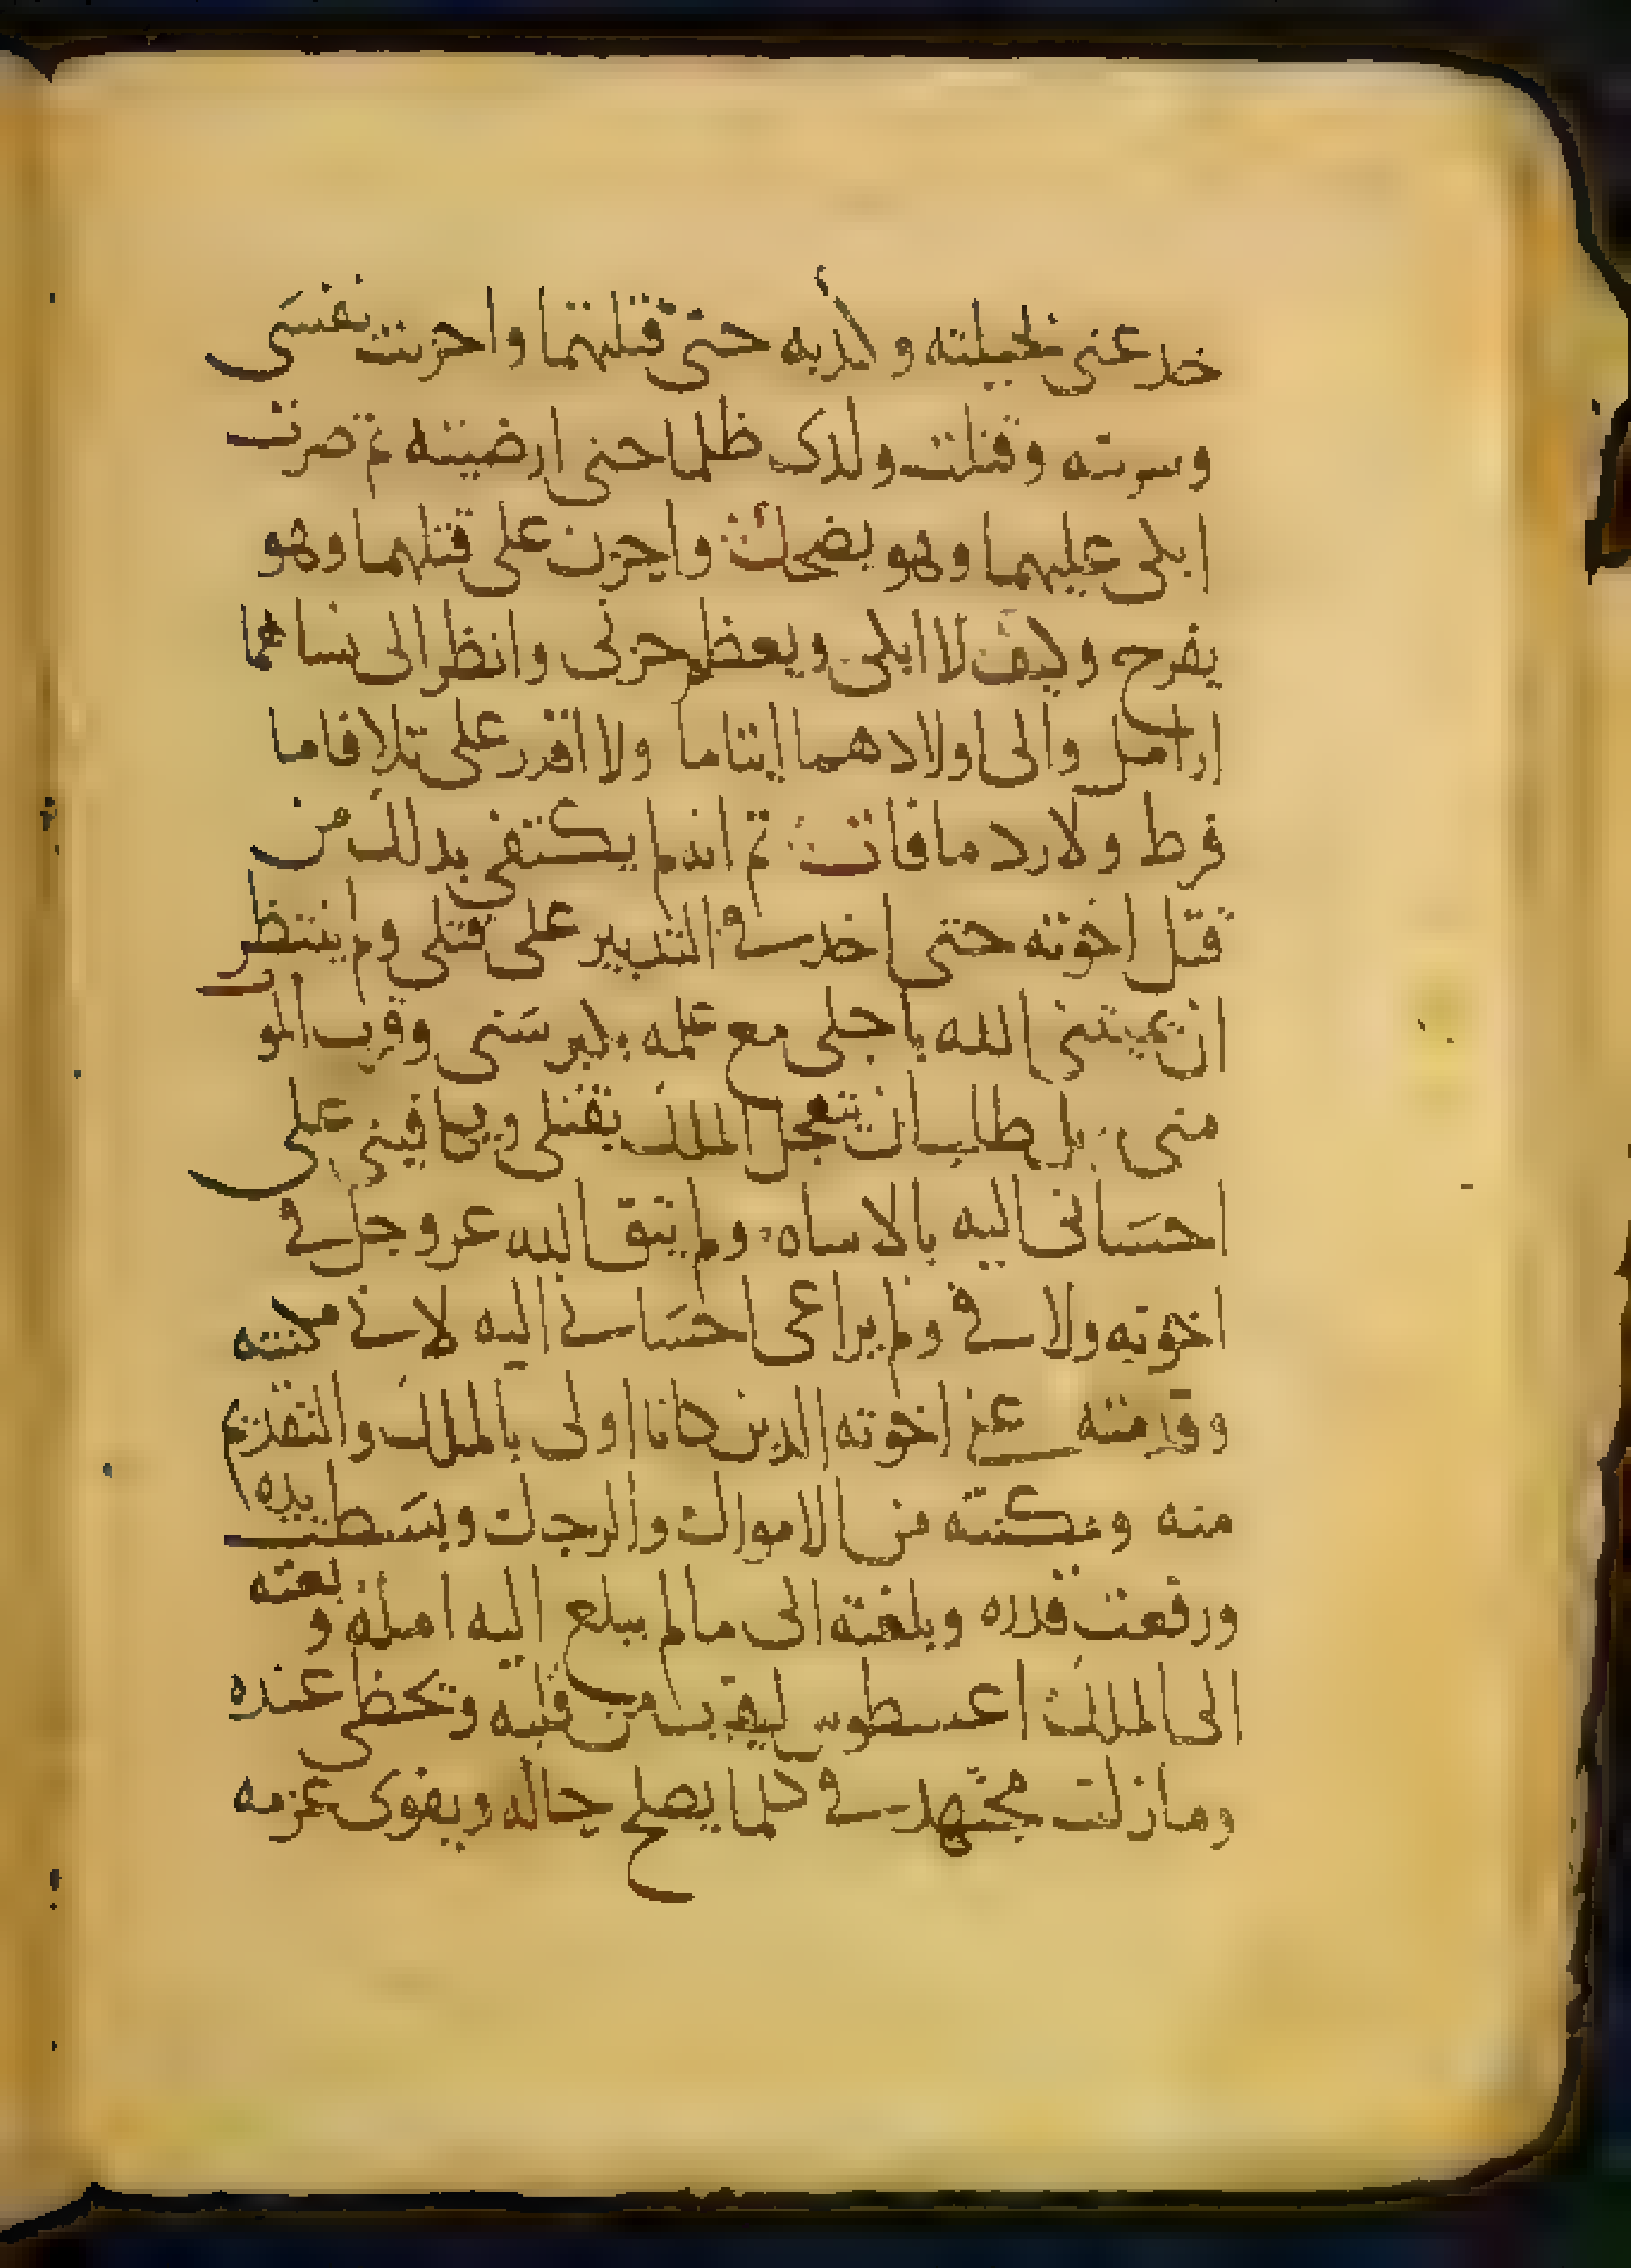 خدعنى بحيلته وكذبه حتى قتلتهما واحزنت نفسى
وسررته وقتلت ولدى ظلما حتى ارضيته ثم صرت
ابكى عليهما وهو يضحك واحزن على قتلهما وهو
يفرح وكيف لا ابكى ويعظم حزنى وانظر الى نسائهما
ارامل والى اولادهما ايتاما ولا اقدر على تلافا ما
فرط ولا رد ما فات ثم انه لم يكتفى بدلك من
قتل اخوته حتى اخد فى التدبير على قتلى ولم ينتظر
ان يميتنى الله باجلى مع علمه بكبر سنى وقرب المو
منى بل طلب ان تتعجل الملك بقتلى ويكافينى على
احسانى اليه بالاساه ولم يتق الله عز وجل فى
اخوته ولا فى ولم يراعى احسانى اليه لانى مكنته
وقدمته على اخوته الدين كانا اولى بالملك والتقدم
منه ومكنته من الاموال والرجال وبسطت يده
ورفعت قدره وبلغته الى ما لم يبلع اليه امله و بعته
الى الملك اعسطوس ليقبسا من قلبه وتحظى عنده
وما زلت مجتهد فى كلما يصلح حاله ويقوى عزمه